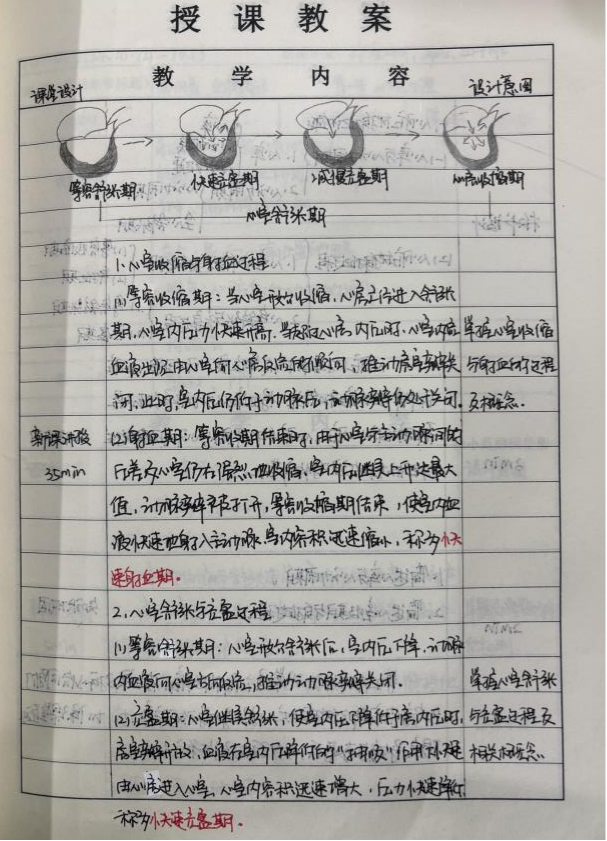 授课教案
课堂设计 教学内容 设计意图
等容舒张期 快速充盈期 减慢充盈期 心房收缩期
心室舒张期
1. 心室收缩与射血过程
(1) 等容收缩期：当心室开始收缩，心房立后进入舒张
期，心室内压力快速升高，当超过心房内压时，心室内
血液出现由心室向心房反向的倾向，推动房室瓣关
闭，此时，室内压仍低于动脉压，动脉瓣仍处于关闭。
掌握心室收缩
与射血的过程
及概念。
新课讲授
35min
(2) 射血期：等容收缩期结束时，由于心室与主动脉间的
压差，心室仍在强烈地收缩，室内压继续上升达最大
值，动脉瓣被打开，等容收缩期结束，使室内血
液快速地射入主动脉，室内容积迅速缩小，称为快
速射血期。
2. 心室舒张与充盈过程
(1) 等容舒张期：心室开始舒张后，室内压下降，动脉
内血液向心室方向反流，推动动脉瓣关闭。
(2) 充盈期：心室继续舒张，使室内压下降低于房内压时，
房室瓣开放，血液在室内压降低的“抽吸”作用下快速
由心房进入心室，心室内容积迅速增大，压力快速降低
称为快速充盈期。
掌握心室舒张
与充盈过程及
相关概念。